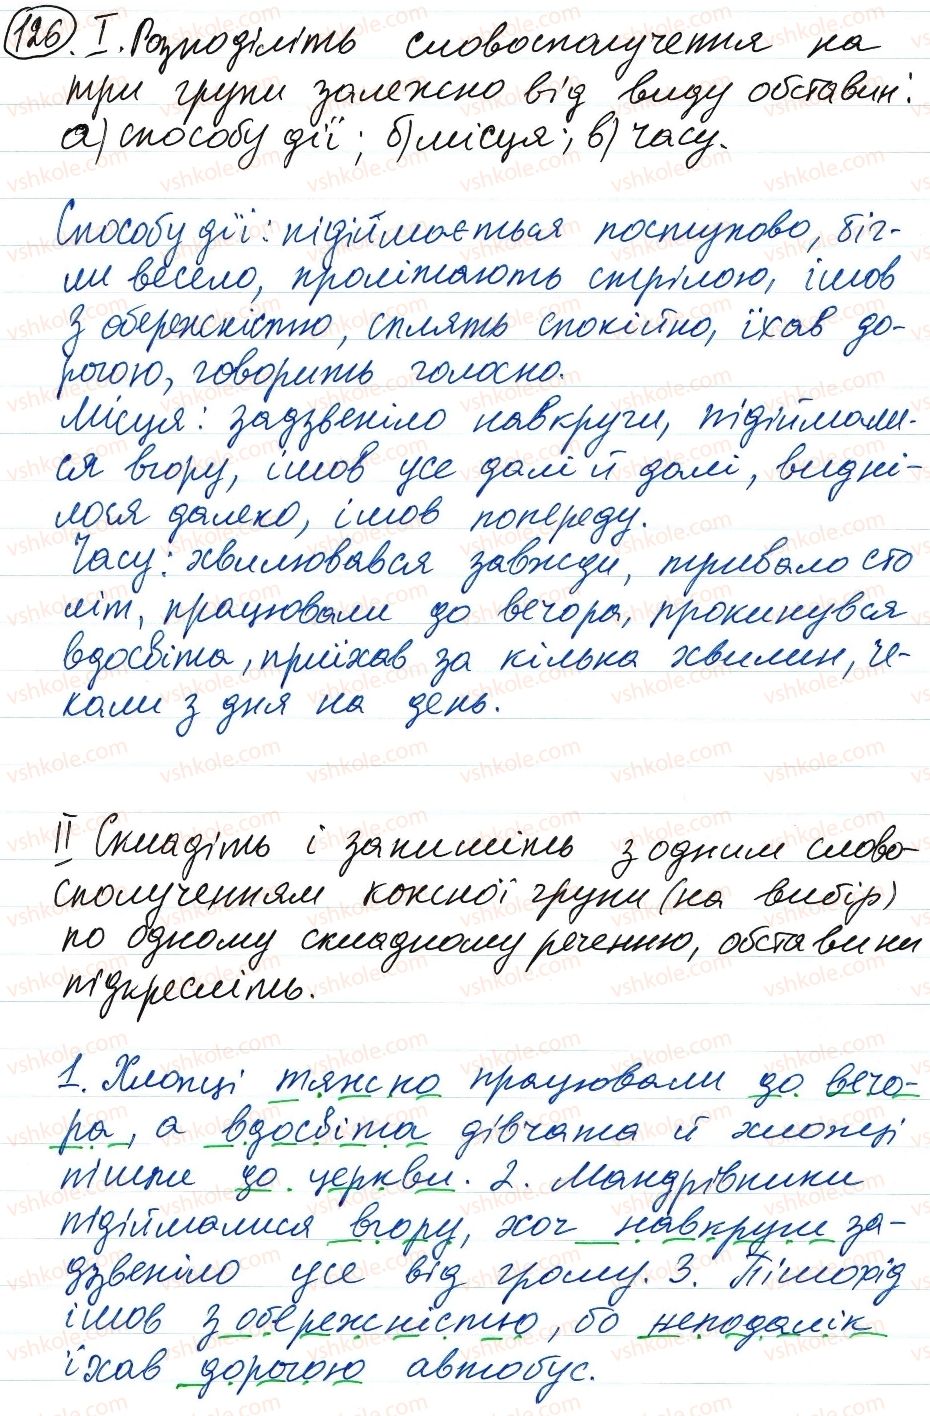 126. І. Розподіліть словосполучення на
три групи залежно від виду обставин:
а) способу дії; б) місця; в) часу.
Способу дії: підіймається поступово, біг-
ли весело, пролітають стрілою, ішов
з обережністю, сплять спокійно, їхав до-
рогою, говорить голосно.
Місця: задзвеніло навкруги, підіймали-
ся вгору, ішов усе далі й далі, видні-
лося далеко, ішов попереду.
Часу: хвилювався завжди, тривало сто
літ, працювали до вечора, прокинувся
вдосвіта, приїхав за кілька хвилин, че-
кали з дня на день.
ІІ Складіть і запишіть з одним слово-
сполученням кожної групи (на вибір)
по одному складному реченню, обставини
підкресліть.
1. Хлопці тяжко працювали до вечо-
ра, а вдосвіта дівчата й хлопці
пішли до церкви. 2. Мандрівники
підіймалися вгору, хоч навкруги за-
дзвеніло усе від грому. 3. Пішохід
ішов з обережністю, бо неподалік
їхав дорогою автобус.
vshkole.com